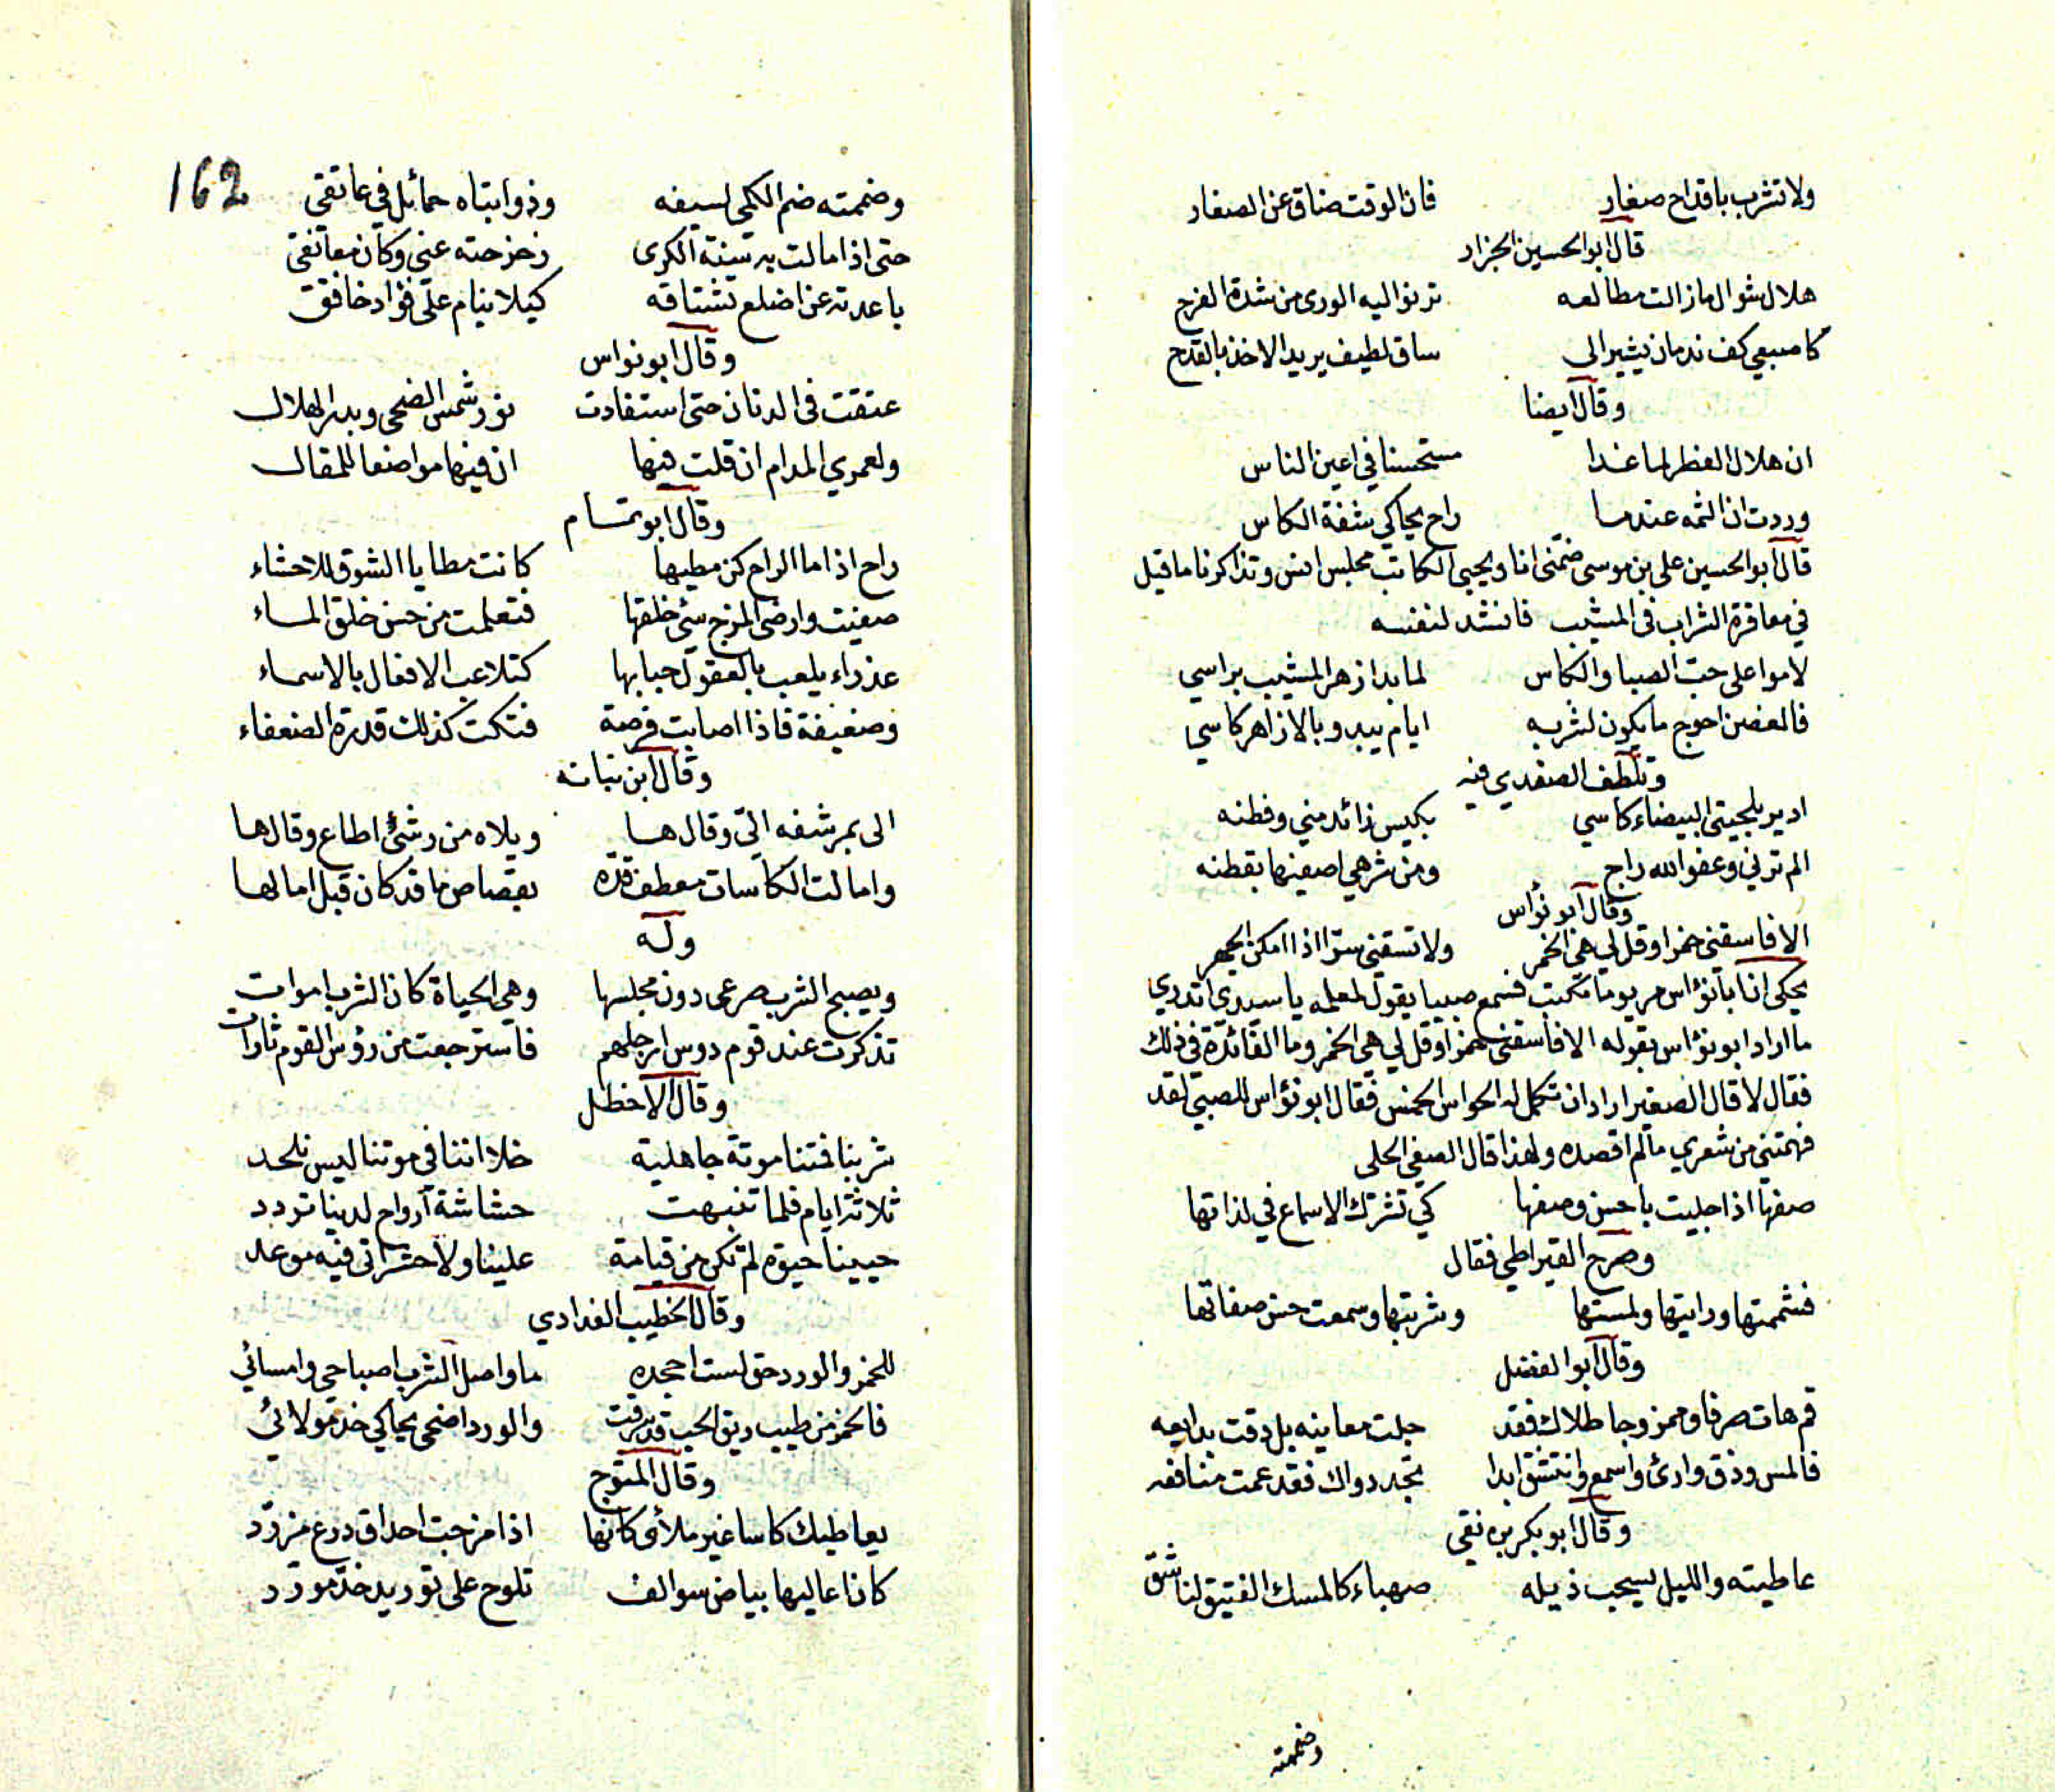 ولا تشرب باقداح صغار فان الوقت ضاق عن الصغار
قال ابو الحسين الجزار
هلال شوال ما زالت مطالعه ترنو اليه الورى من شدة الفرح
كاصبعي كف ندمان يشير الى ساق لطيف يريد الاخذ بالقدح
وقال ايضا
ان هلال الفطر لما غدا مستحسنا في اعين الناس
وددت ان الثمه عندما راح يحاكي شفة الكاس
قال ابو الحسين علي بن موسى ضمنى انا ويحيى الكاتب مجلس انس وتذاكرنا ما قيل
في معاقرة الشراب فى المشيب فانشد لنفسه
لاموا على حب الصبا والكاس لما بدا زهر المشيب براسي
فالغصن احوج ما يكون لشربه ايام يبدو بالازاهر كاسي
وتلطف الصفدي فيه
ادير بلحيتى البيضاء كاسي بكيس زائد مني وفطنه
الم ترني وعفو الله راج ومن شرهي اصفيها بقطنه
وقال ابو نؤاس
الا فاسقنى خمرا وقل لي هي الخمر ولا تسقنى سرا اذا امكن الجهر
يحكى ان ابا نؤاس مر يوما بمكتب فسمع صبيا يقول لمعلمه يا سيدى اتدري
ما اراد ابو نؤاس بقوله الا فاسقنى خمرا وقل لي هي الخمر وما الفائدة في ذلك
فقال لا قال الصغير اراد ان تكمل له الحواس الخمس فقال ابو نؤاس للصبي لقد
فهمتني من شعري ما لم اقصده ولهذا قال الصفي الحلى
صفها اذا جليت باحسن وصفها كي تشرك الاسماع في لذاتها
وصرح القيراطي فقال
فشممتها ورايتها ولمستها وشربتها وسمعت حسن صفاتها
وقال ابو الفضل
قم هات صرفا وممزوجا طلاك فقد جلت معانيه بل دقت بدايعه
فالمس وذق وارئ واسمع وانتشق ابدا تجد دواك فقد عمت منافعه
وقال ابو بكر بن نقى
عاطيته والليل يسحب ذيله صهباء كالمسك الفتيق لناشق
وضممته
162
وضممته ضم الكمي لسيفه وذوابتاه حمائل في عاتقى
حتى اذا مالت به سنة الكرى زحزحته عنى وكان معانقى
باعدته عن اضلع تشتاقه كيلا ينام على فؤاد خافق
وقال ابو نواس
عتقت فى الدنان حتى استفادت نور شمس الضحى وبدر الهلال
ولعمري المدام ان قلت فيها ان فيها مواضعا للمقال
وقال ابو تمام
راح اذا ما الراح كن مطيها كانت مطايا الشوق للاحشاء
صعبت وارضى المزج سئ خلقها فتعلمت من حسن خلق الماء
عذراء يلعب بالعقول حبابها كتلاعب الافعال بالاسماء
وضعيفة فاذا اصابت فرصة فتكت كذلك قدرة الضعفاء
وقال ابن نباته
الى بمرشفه الىّ وقال ها ويلاه من رشئ اطاع وقال ها
وامالت الكاسات معطف قده بقصاص ما قد كان قبل امالها
وله
ويصبح الشرب صرعى دون مجلسها وهي الحياة كان الشرب اموات
تذكرت عند قوم دوس ارجلهم فاسترجعت من رؤس القوم ثارات
وقال الاخطل
شربنا فمتنا موتة جاهلية خلا اننا في موتنا ليس نلحد
ثلاثة ايام فلما تنبهت حشاشة ارواح لدينا تردد
حيينا حيوة لم تكن من قيامة علينا ولا حشر اتى فيه موعد
وقال الخطيب البغدادي
للخمر والورد حق لست اجحده ما واصل الشرب اصباحي وامسائي
فالخمر من طيب ريق الحب قد سرقت والورد اضحى يحاكي خد مولائي
وقال المتوج
يعاطيك كاسا غير ملأى كانها اذا مزجت احداق درع مزرد
كان اعاليها بياض سوالف تلوح على توريد خد مورد